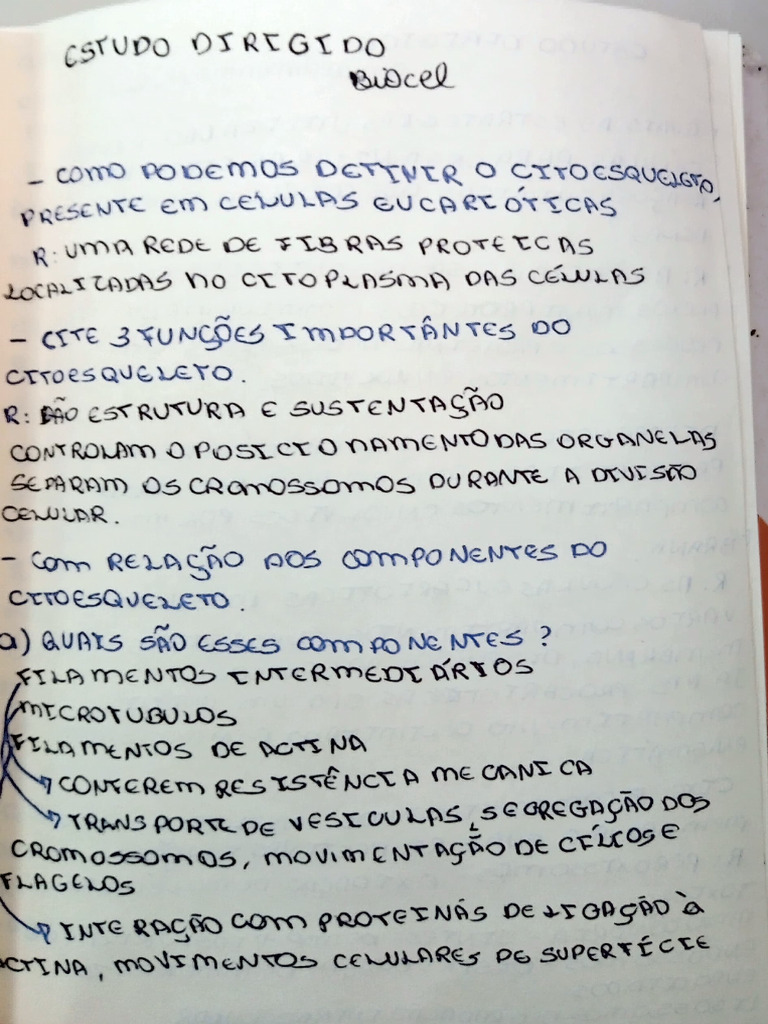 ESTUDO DIRIGIDO
Biocel
- COMO PODEMOS DEFINIR O CITOESQUELETO,
PRESENTE EM CELULAS EUCARIÓTICAS
R: UMA REDE DE FIBRAS PROTEICAS
LOCALIZADAS NO CITOPLASMA DAS CÉLULAS
- CITE 3 FUNÇÕES IMPORTÂNTES DO
CITOESQUELETO.
R: DÃO ESTRUTURA E SUSTENTAÇÃO
CONTROLAM O POSICIONAMENTO DAS ORGANELAS
SEPARAM OS CROMOSSOMOS DURANTE A DIVISÃO
CELULAR.
- COM RELAÇÃO AOS COMPONENTES DO
CITOESQUELETO.
a) QUAIS SÃO ESSES COMPONENTES ?
FILAMENTOS INTERMEDIÁRIOS
MICROTUBULOS
FILAMENTOS DE ACTINA
CONFEREM RESISTÊNCIA MECANICA
TRANSPORTE DE VESICULAS, SEGREGAÇÃO DOS
CROMOSSOMOS, MOVIMENTAÇÃO DE CÍLIOS E
FLAGELOS
INTERAÇÃO COM PROTEINAS DE LIGAÇÃO À
ACTINA, MOVIMENTOS CELULARES DE SUPERFÍCIE